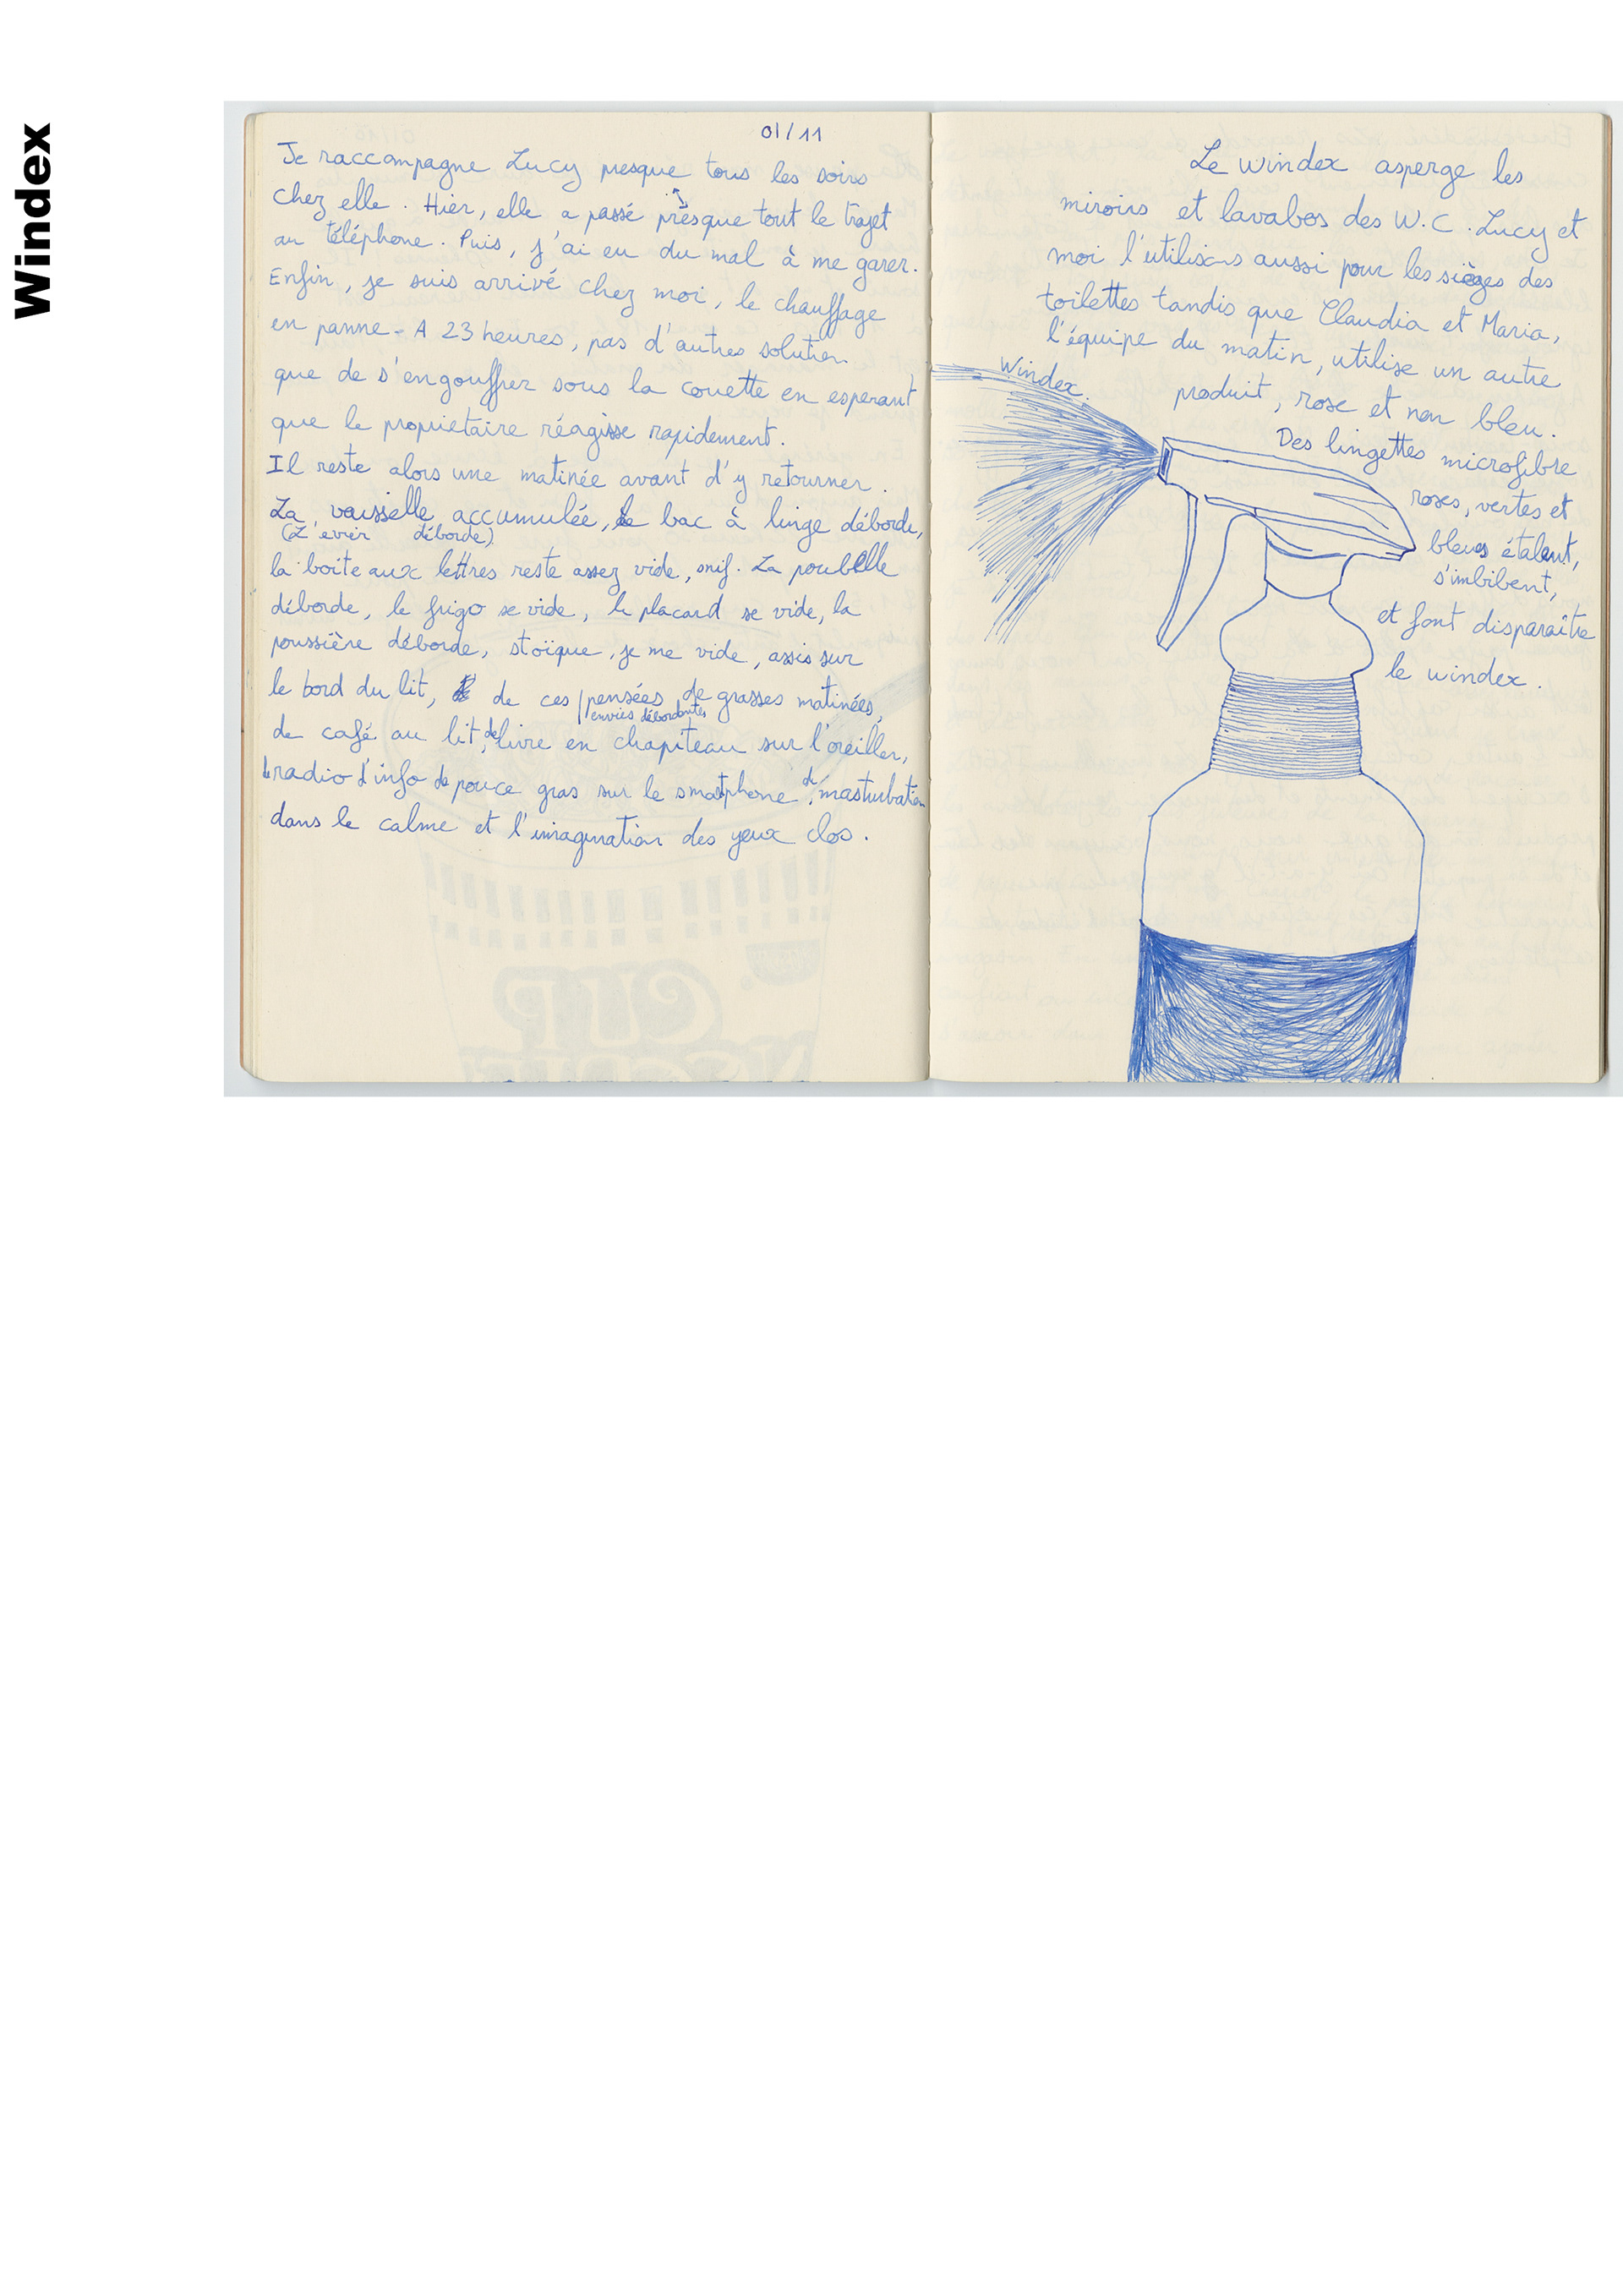 Windex
01/11
Je raccompagne Lucy presque tous les soirs
chez elle. Hier, elle a passé presque tout le trajet
au téléphone. Puis, j'ai eu du mal à me garer.
Enfin, je suis arrivé chez moi, le chauffage
en panne - A 23 heures, pas d'autres solution
que de s'engouffrer sous la couette en esperant
que le propietaire réagisse rapidement.
Il reste alors une matinée avant d'y retourner.
La vaisselle accumulée, le bac à linge déborde,
(L'evier déborde)
la boite aux lettres reste assez vide, snif. La poubelle
déborde, le frigo se vide, le placard se vide, la
poussière déborde, stoïque, je me vide, assis sur
le bord du lit, de ces pensées de grasses matinées,
envies débordantes
de café au lit, de livre en chapiteau sur l'oreiller,
de radio d'info de pouce gras sur le smatphone, de masturbation
dans le calme et l'imagination des yeux clos.
Le windex asperge les
miroirs et lavabos des W.C. Lucy et
moi l'utilisons aussi pour les sièges des
toilettes tandis que Claudia et Maria,
l'équipe du matin, utilise un autre
produit, rose et non bleu.
Windex.
Des lingettes microfibre
roses, vertes et
bleues étalent,
s'imbibent,
et font disparaître
le windex.
CUP